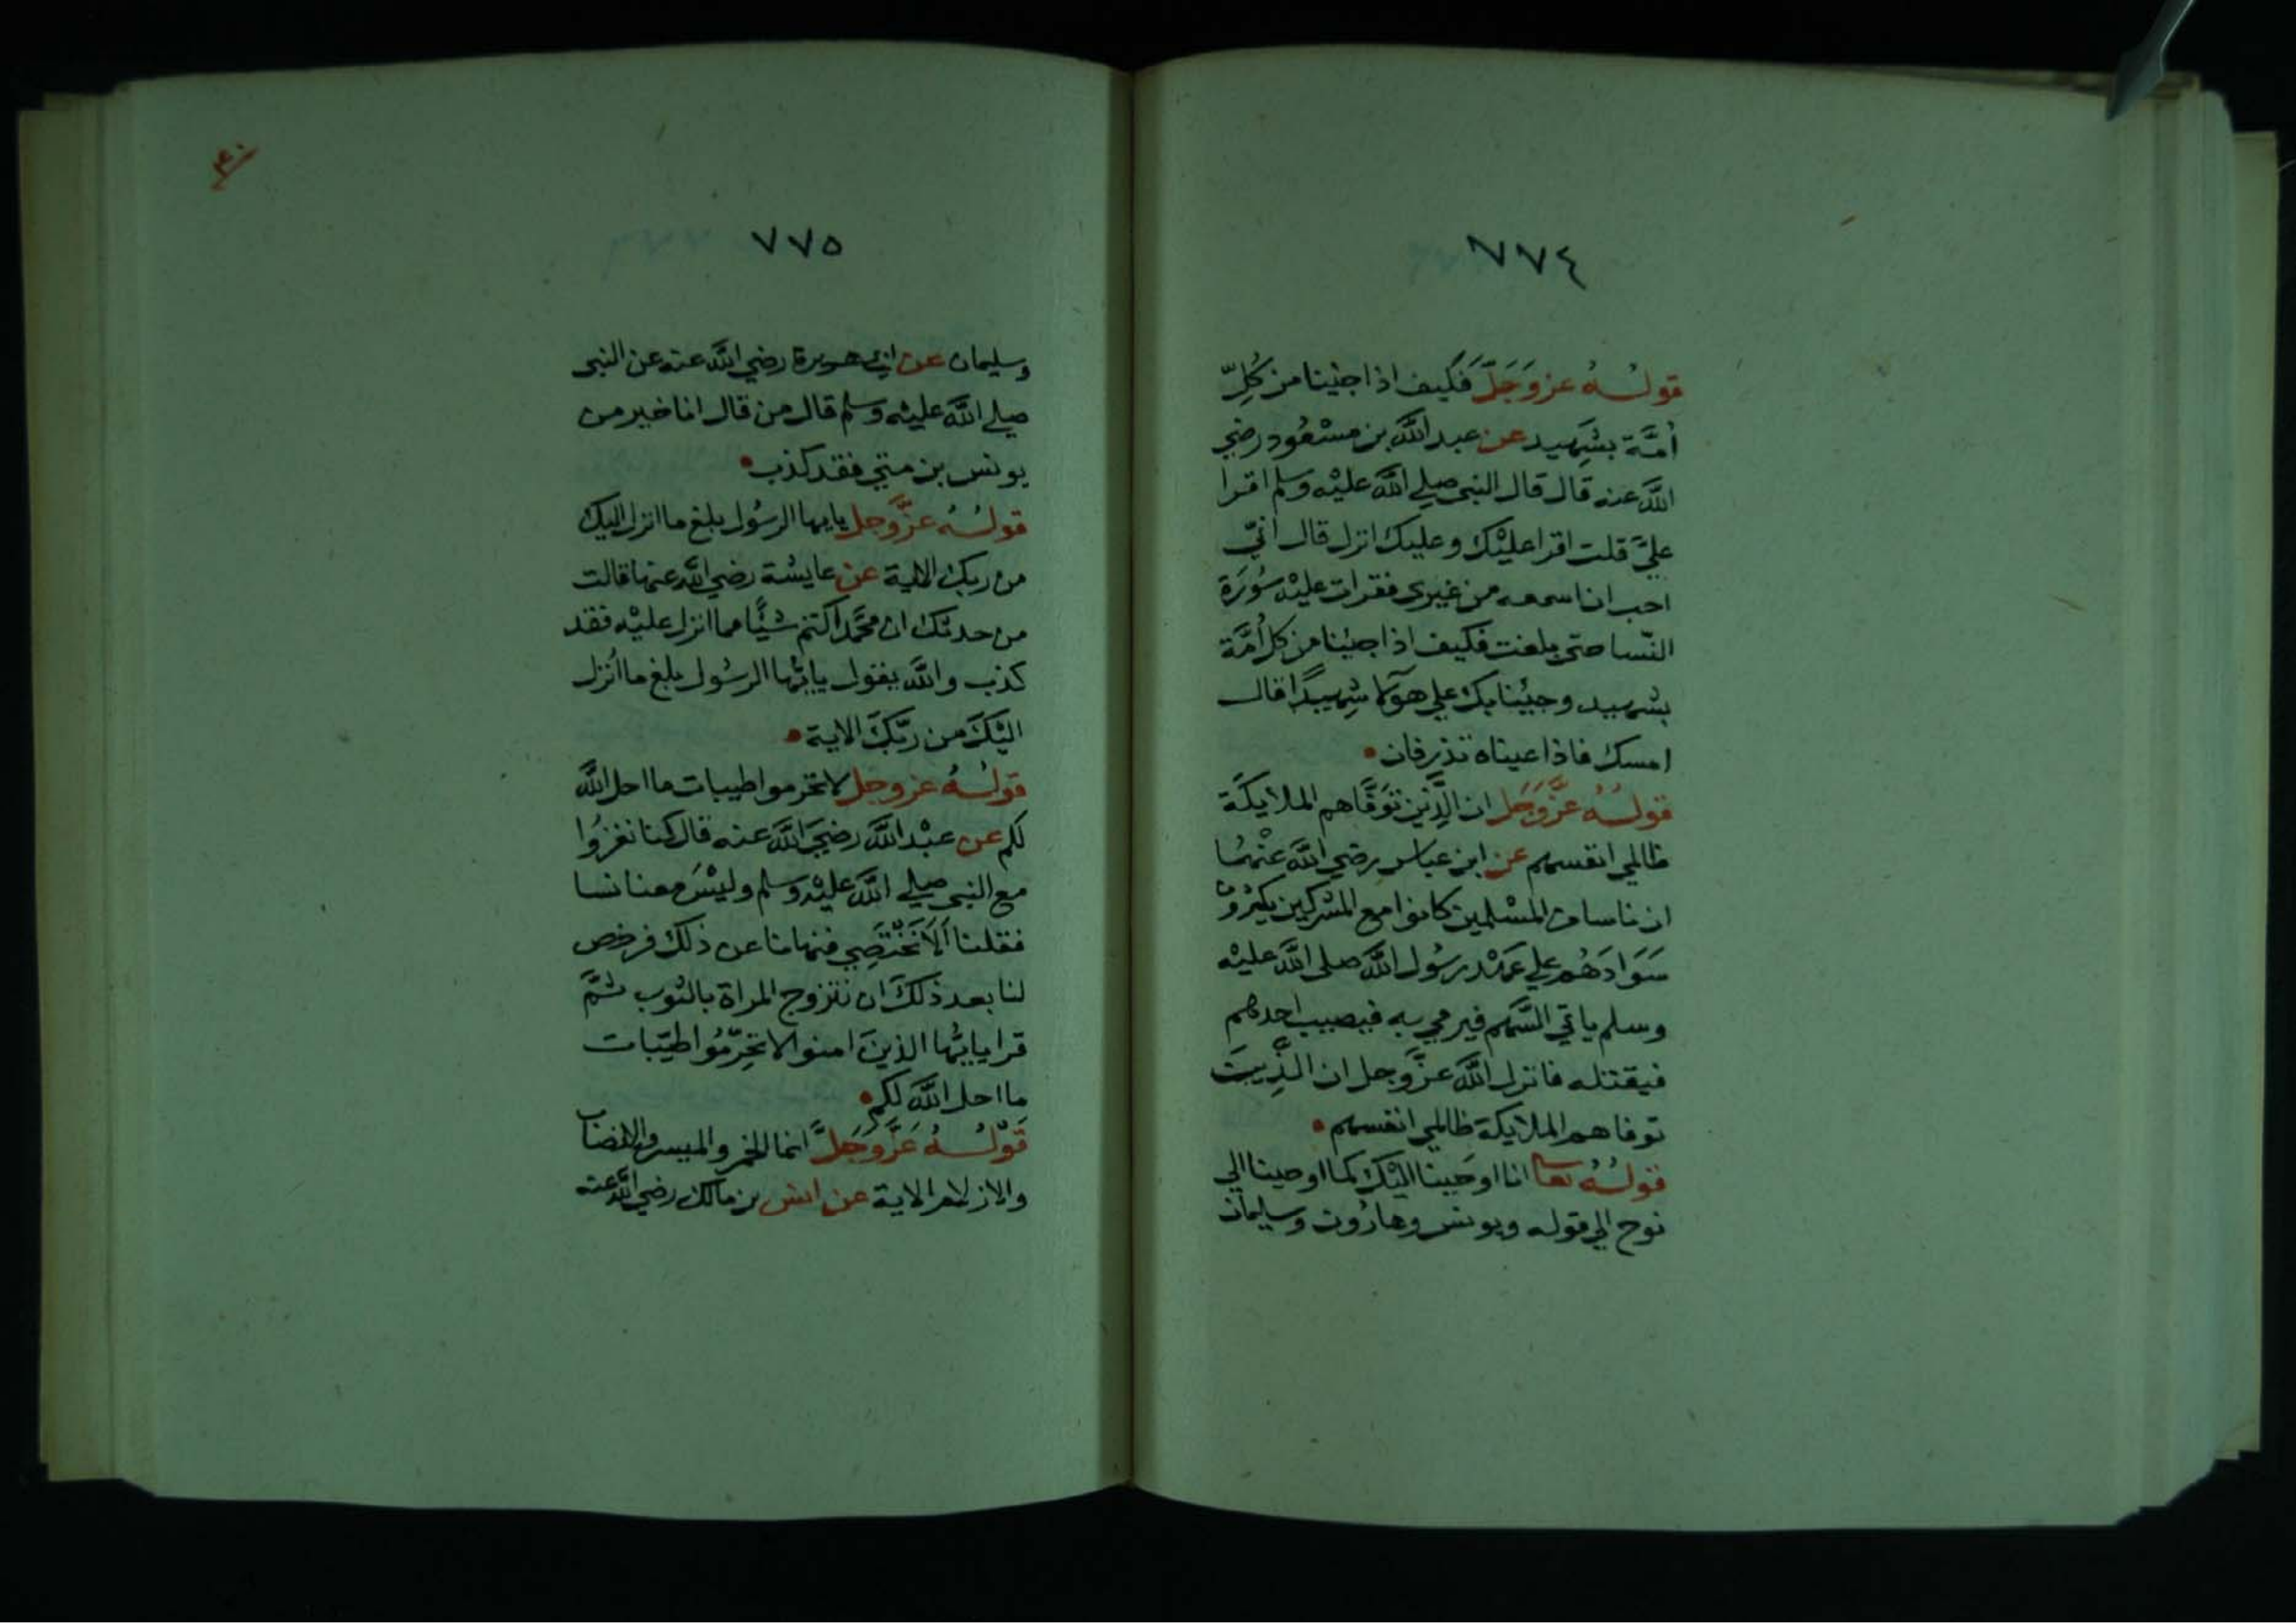 ٧٧٤
قولـه عز وَجَلّ فَكيف اذا جئنا من كُلِّ
أمّة بشهيد عن عبد الله بن مسْعُود رضي
الله عنه قال قال النبي صلي الله عليْه وسلم اقرا
عليَّ قلت اقرا عليْك وعليك انزل قال انّي
احب ان اسمعه من غيري فقرات عليْه سُورَة
النّسا حتي بلغت فكيف اذا جئنا من كل أمَّة
بشهيد وجيْنا بك علي هوَلا شهِيدًا قال
امسك فاذا عيناه تذرفان
قولـُهُ عزَّ وَجَل ان الَّذين توَفّاهم الملايكَة
ظالمي انفسهم عن ابن عباس رضي الله عنْهُما
ان ناسا من المسْلمين كانوا مع المشركين يكثرُون
سَوادَهُم علي عَهْد رسُول الله صلى الله عليْه
وسلم ياتي السَّهم فيرمي به فيصيب احدهم
فيقتله فانزل الله عزَّ وجل ان الَّذِينَ
توفاهم الملايكة ظالمي انفسهم
قولـُهُ تعا انا اوحَينا اليْك كما اوحينا الي
نوح الي قوله ويونس وهارُون وسليمان
٤٠
٧٧٥
وسليمان عن ابي هريرة رضي الله عنه عن النبي
صلي الله عليْه وسلم قال من قال انا خير من
يونس بن متي فقد كذب
قولـُهُ عزَّ وجل يايها الرسُول بلغ ما انزل اليك
من ربك الاية عن عايشة رضي الله عنها قالت
من حدثك ان محمَّدا كتم شيًّا مما انزل عليْه فقد
كذب والله يقول يايّها الرسُول بلغ ما أنزل
اليْكَ من ربّكَ الاية
قولـُهُ عز وجل لا تحرموا طيبات ما احل الله
لكم عن عبْد الله رضيَ الله عنه قال كنا نغزُوا
مع النبي صلي الله عليْه وسلم وليْسَ معنا نسا
فقلنا ألَا نَخْتَصِي فنهانا عن ذلك فرخص
لنا بعد ذلكَ ان نتزوج المراة بالثوب ثمَّ
قرا يايّها الذينَ امنوا لا تحرِّمُوا طيّبات
ما احل الله لكم
قَولـُهُ عَزَّ وَجَلَّ انما الخمر والميسر والانصاب
والازلام الاية عن انس بن مالك رضي الله عنه